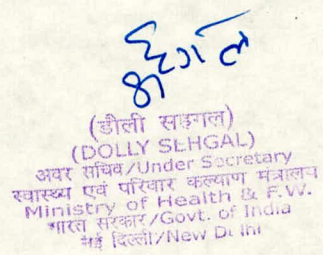 सहगल
(डौली सहगल)
(DOLLY SEHGAL)
अवर सचिव/Under Secretary
स्वास्थ्य एवं परिवार कल्याण मंत्रालय
Ministry of Health & F.W.
भारत सरकार/Govt. of India
नई दिल्ली/New Delhi